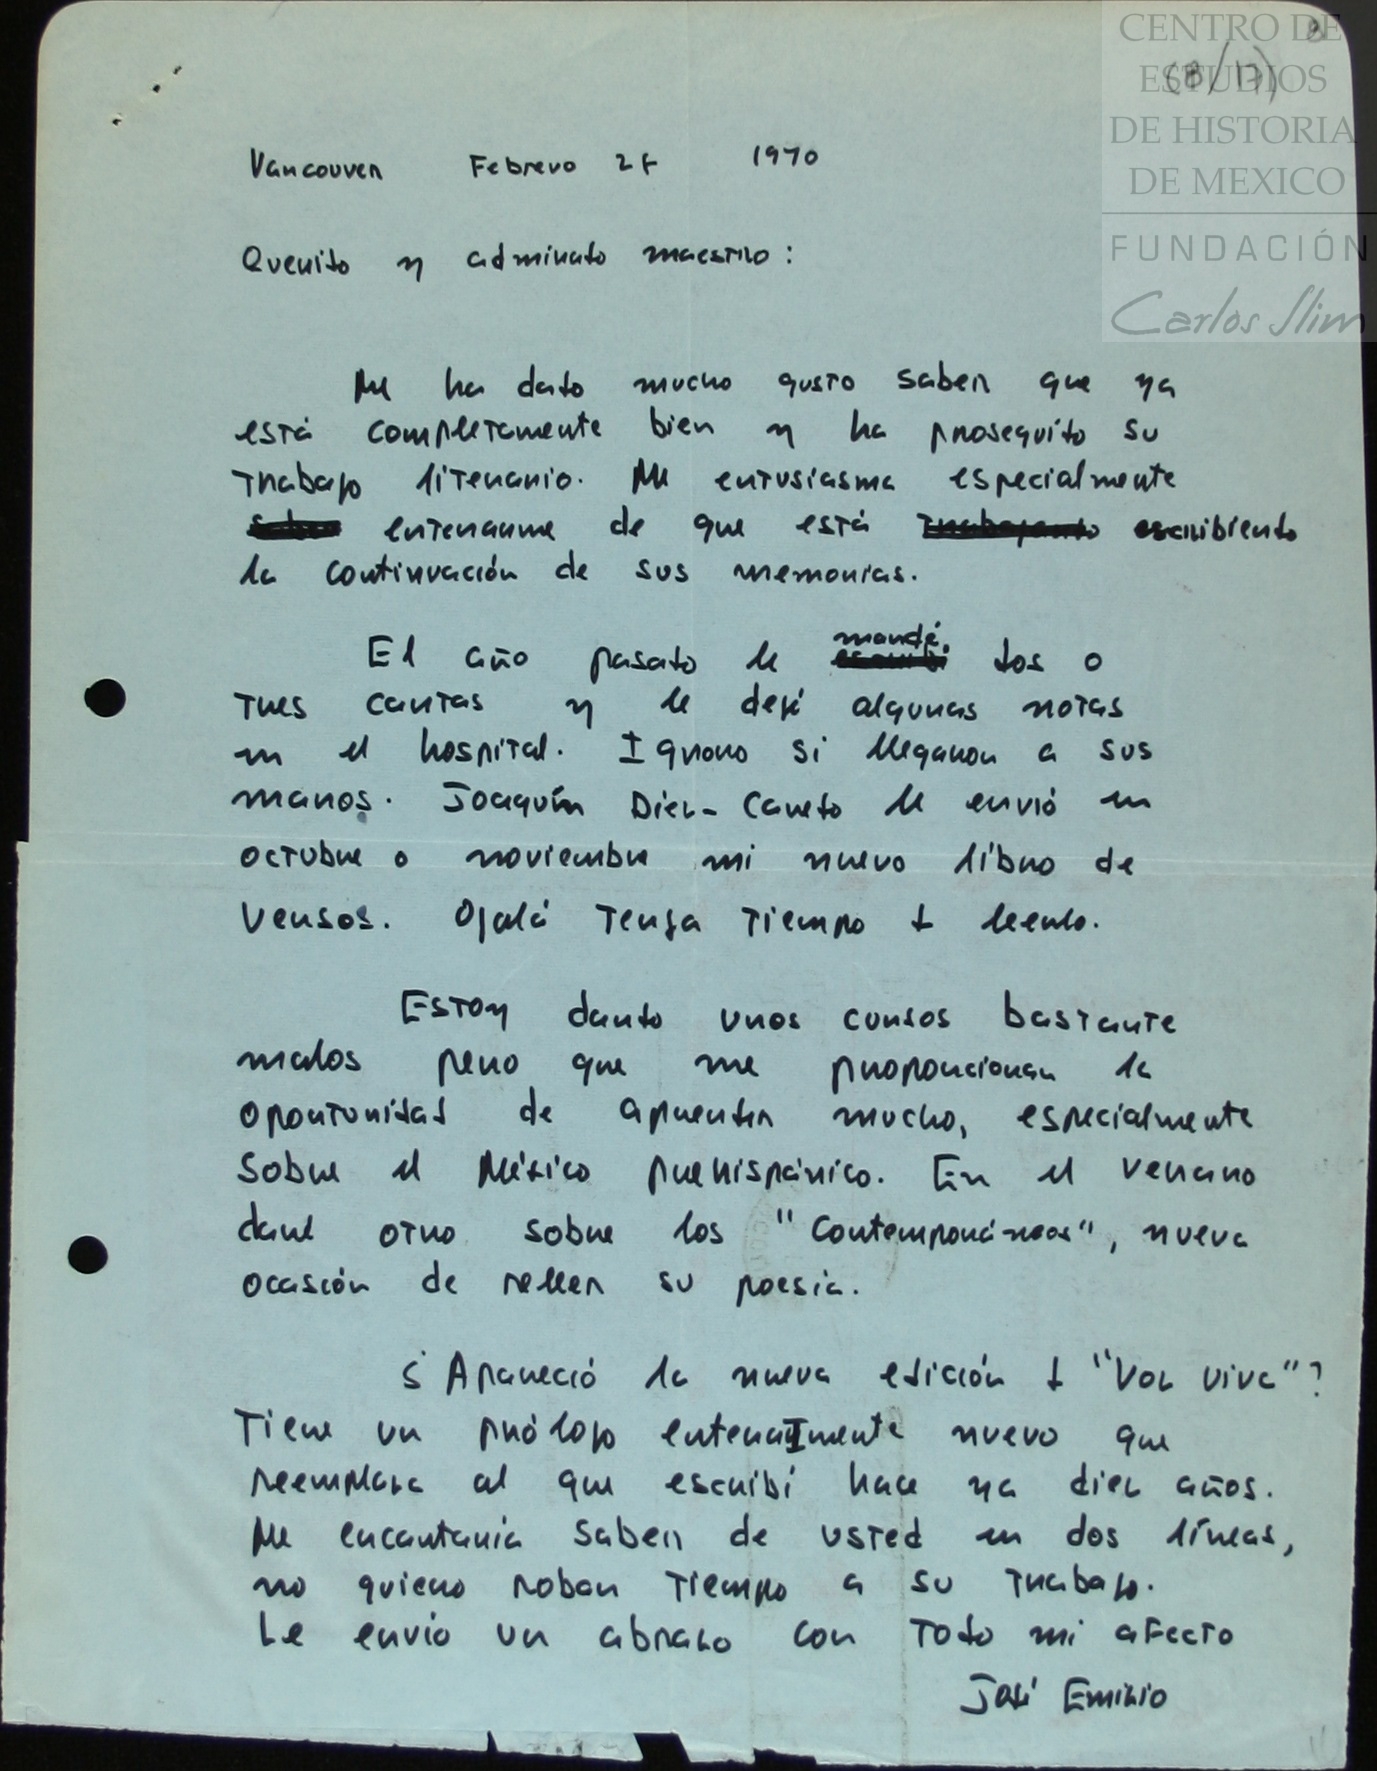 CENTRO DE
ESTUDIOS
DE HISTORIA
DE MEXICO
FUNDACIÓN
Carlos Slim
(8/17)
Vancouver Febrero 28 1970
Querido y admirado maestro:
Me ha dado mucho gusto saber que ya
está completamente bien y ha proseguido su
trabajo literario. Me entusiasma especialmente
enterarme de que está escribiendo
la continuación de sus memorias.
El año pasado le mandé dos o
tres cartas y le dejé algunas notas
en el hospital. Ignoro si llegaron a sus
manos. Joaquín Diez-Canedo le envió en
octubre o noviembre mi nuevo libro de
versos. Ojalá tenga tiempo d leerlo.
Estoy dando unos cursos bastante
malos pero que me proporcionan la
oportunidad de aprender mucho, especialmente
sobre el México prehispánico. En el verano
daré otro sobre los "Contemporáneos", nueva
ocasión de releer su poesía.
¿Apareció la nueva edición d "Voz viva"?
Tiene un prólogo enteramente nuevo que
reemplaza al que escribí hace ya diez años.
Me encantaría saber de usted en dos líneas,
no quiero robar tiempo a su trabajo.
Le envío un abrazo con todo mi afecto
José Emilio